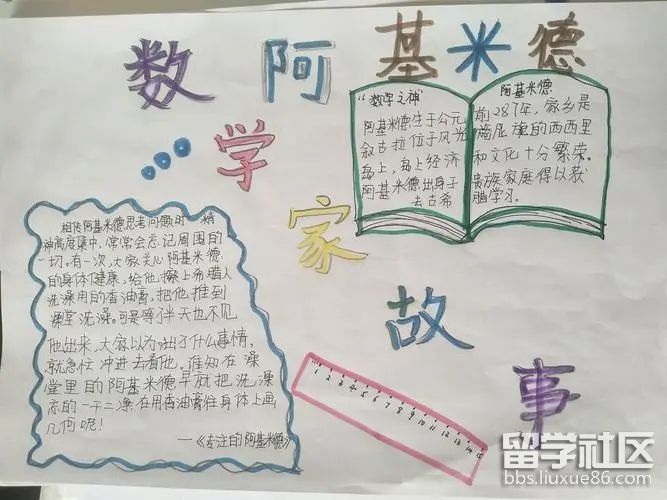 数 阿基米德
学
家
故
事
"数学之神"
阿基米德生于公元
叙古拉位于风光
岛上,岛上经济
阿基米德出身于
去古希
阿基米德
前287年,家乡是
的西西里
和文化十分繁荣。
贵族家庭得以获
腊学习。
相传阿基米德思考问题时,精
神高度集中,常常会忘记周围的
一切,有一次,大家关心阿基米德
的身体健康,给他擦上希腊人
洗澡用的香油膏,把他推到
澡堂洗澡。可是等了半天也不见
他出来,大家以为出了什么事情,
就急忙冲进去看他。谁知在澡
堂里的阿基米德早就把洗澡
忘的一干二净,在用香油膏往身体上画
几何呢!
—《专注的阿基米德》
1 2 3 4 5 6 7 8 9 10 11 12 13 14 15
留学社区
bbs.liuxue86.com